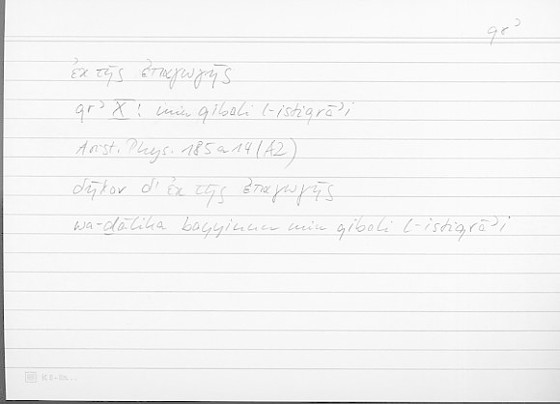 qrʾ
ἐκ τῆς ἐπαγωγῆς
qrʾ X: min qibali l-istiqrāʾi
Arist. Phys. 185a14 (A2)
δῆλον δ' ἐκ τῆς ἐπαγωγῆς
wa-ḏālika bayyinun min qibali l-istiqrāʾi